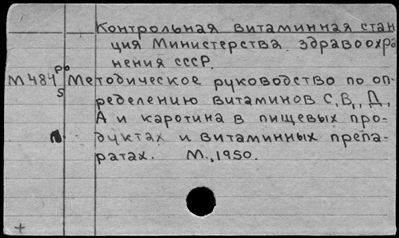 Контрольная витаминная стан
ция Министерства здравоохра
нения СССР.
М484 ро Методическое руководство по оп-
s ределению витаминов С, В₁, Д,
А и каротина в пищевых про-
дуктах и витаминных препа-
ратах. М., 1950.